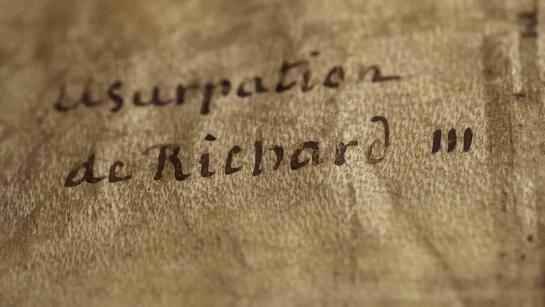 Usurpation
de Richard III